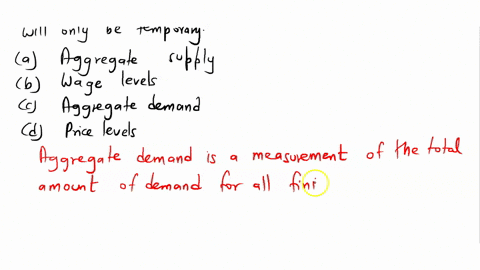 will only be temporary.
(a) Aggregate supply
(b) Wage levels
(c) Aggregate demand
(d) Price levels
Aggregate demand is a measurement of the total
amount of demand for all fini